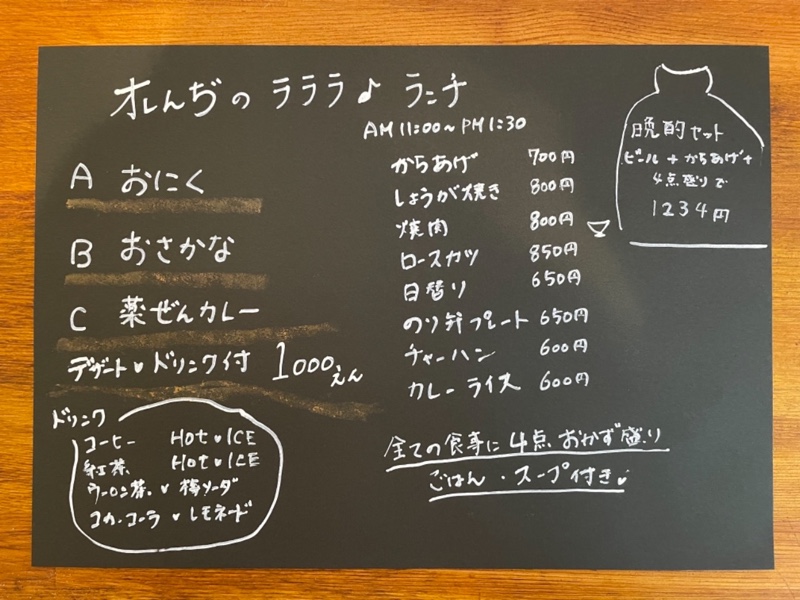 オレんぢの ラララ♪ ランチ
AM 11:00~PM 1:30
A おにく
B おさかな
C 薬ぜんカレー
デザート♥ドリンク付 1000えん
ドリンク
コーヒー HOT♥ICE
紅茶 HOT♥ICE
ウーロン茶♥梅ソーダ
コカ・コーラ♥レモネード
からあげ 700円
しょうが焼き 800円
焼肉 800円
ロースカツ 850円
日替り 650円
のり弁プレート 650円
チャーハン 600円
カレーライス 600円
全ての食事に4点おかず盛り
ごはん・スープ付き♥
晩酌セット
ビール+からあげ+
4点盛りで
1234円